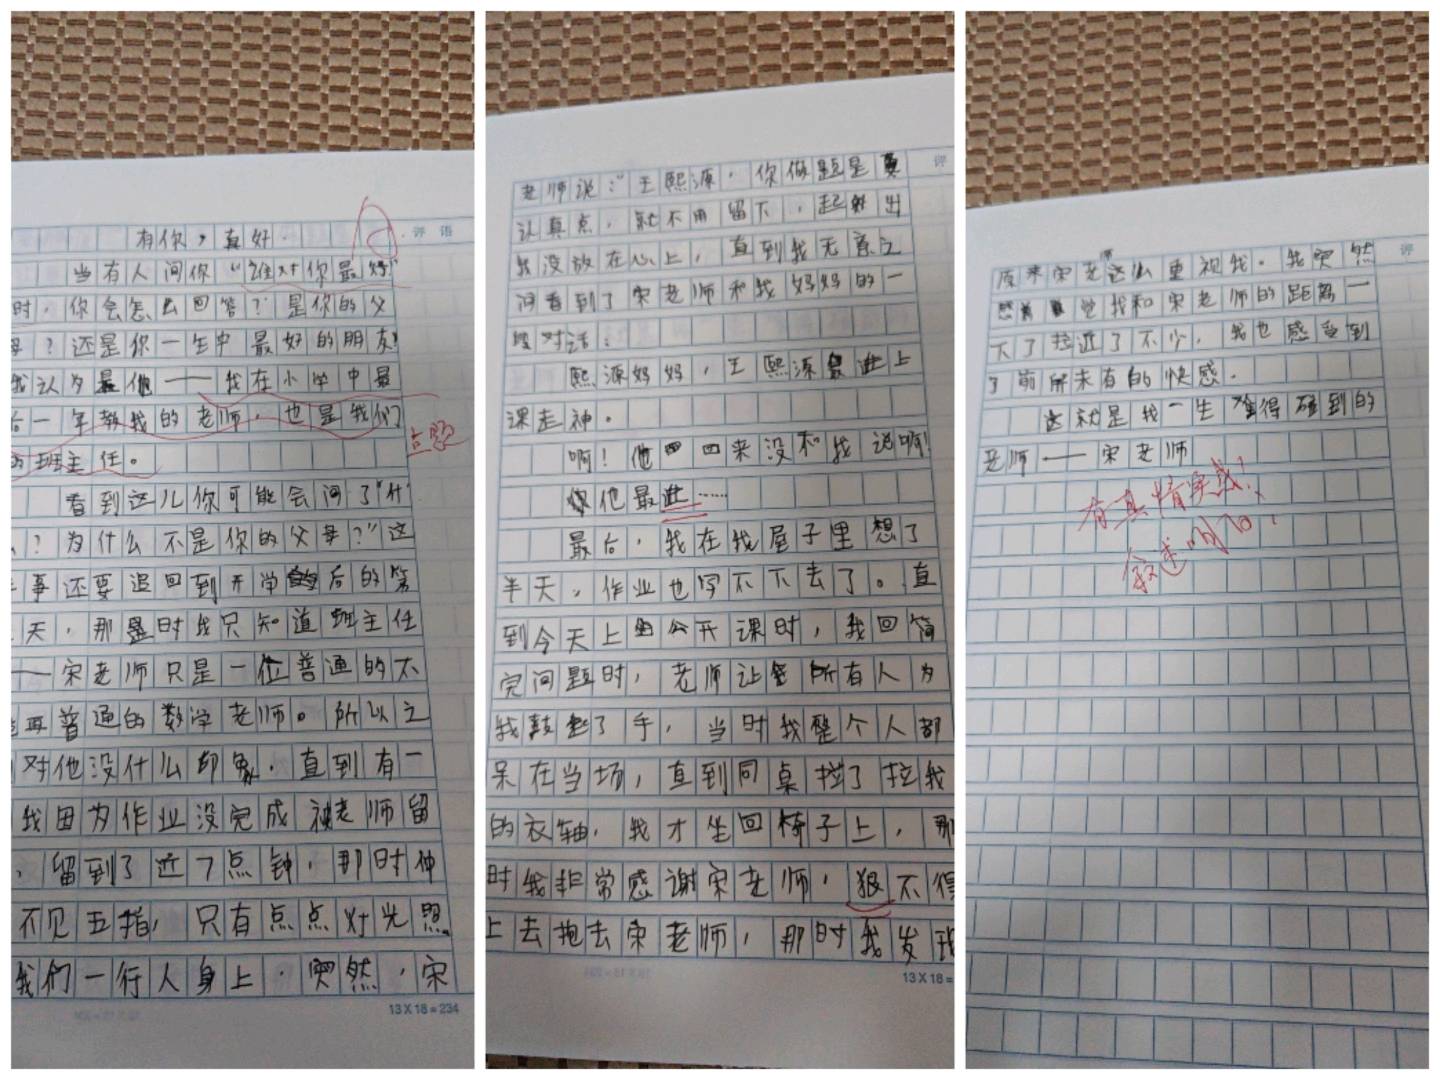 有你，真好．
评语
当有人问你“谁对你最好”
时，你会怎么回答？是你的父
母？还是你一生中最好的朋友？
我认为是他——我在小学中最
后一年教我的老师，也是我们
的班主任。
点题
看到这儿你可能会问了“什
么？为什么不是你的父母？”这
事还要追回到开学后的第
天，那时我只知道班主任
——宋老师只是一位普通的不
能再普通的数学老师。所以之
对他没什么印象．直到有一
我因为作业没完成被老师留
，留到了近7点钟，那时伸
不见五指，只有点点灯光照
我们一行人身上．突然，宋
13×18=234
老师说：“王熙源，你做题是真
评
认真点，就不用留下，起 出
我没放在心上，直到我无意之
间看到了宋老师和我妈妈的一
段对话：
熙源妈妈，王熙源最近上
课走神。
啊！他回来没和我说啊！
他最近……
最后，我在我屋子里想了
半天，作业也写不下去了。直
到今天上公开课时，我回答
完问题时，老师让所有人为
我鼓起了手，当时我整个人都
呆在当场，直到同桌拉了拉我
的衣轴，我才坐回椅子上，那
时我非常感谢宋老师，狠不得
上去抱去宋老师，那时我发现
13×18=
原来宋老师这么重视我。我突然
评
觉我和宋老师的距离一
下了拉近了不少，我也感受到
了前所未有的快感．
这就是我一生难得碰到的
老师——宋老师
有真情实感！
叙述明白！